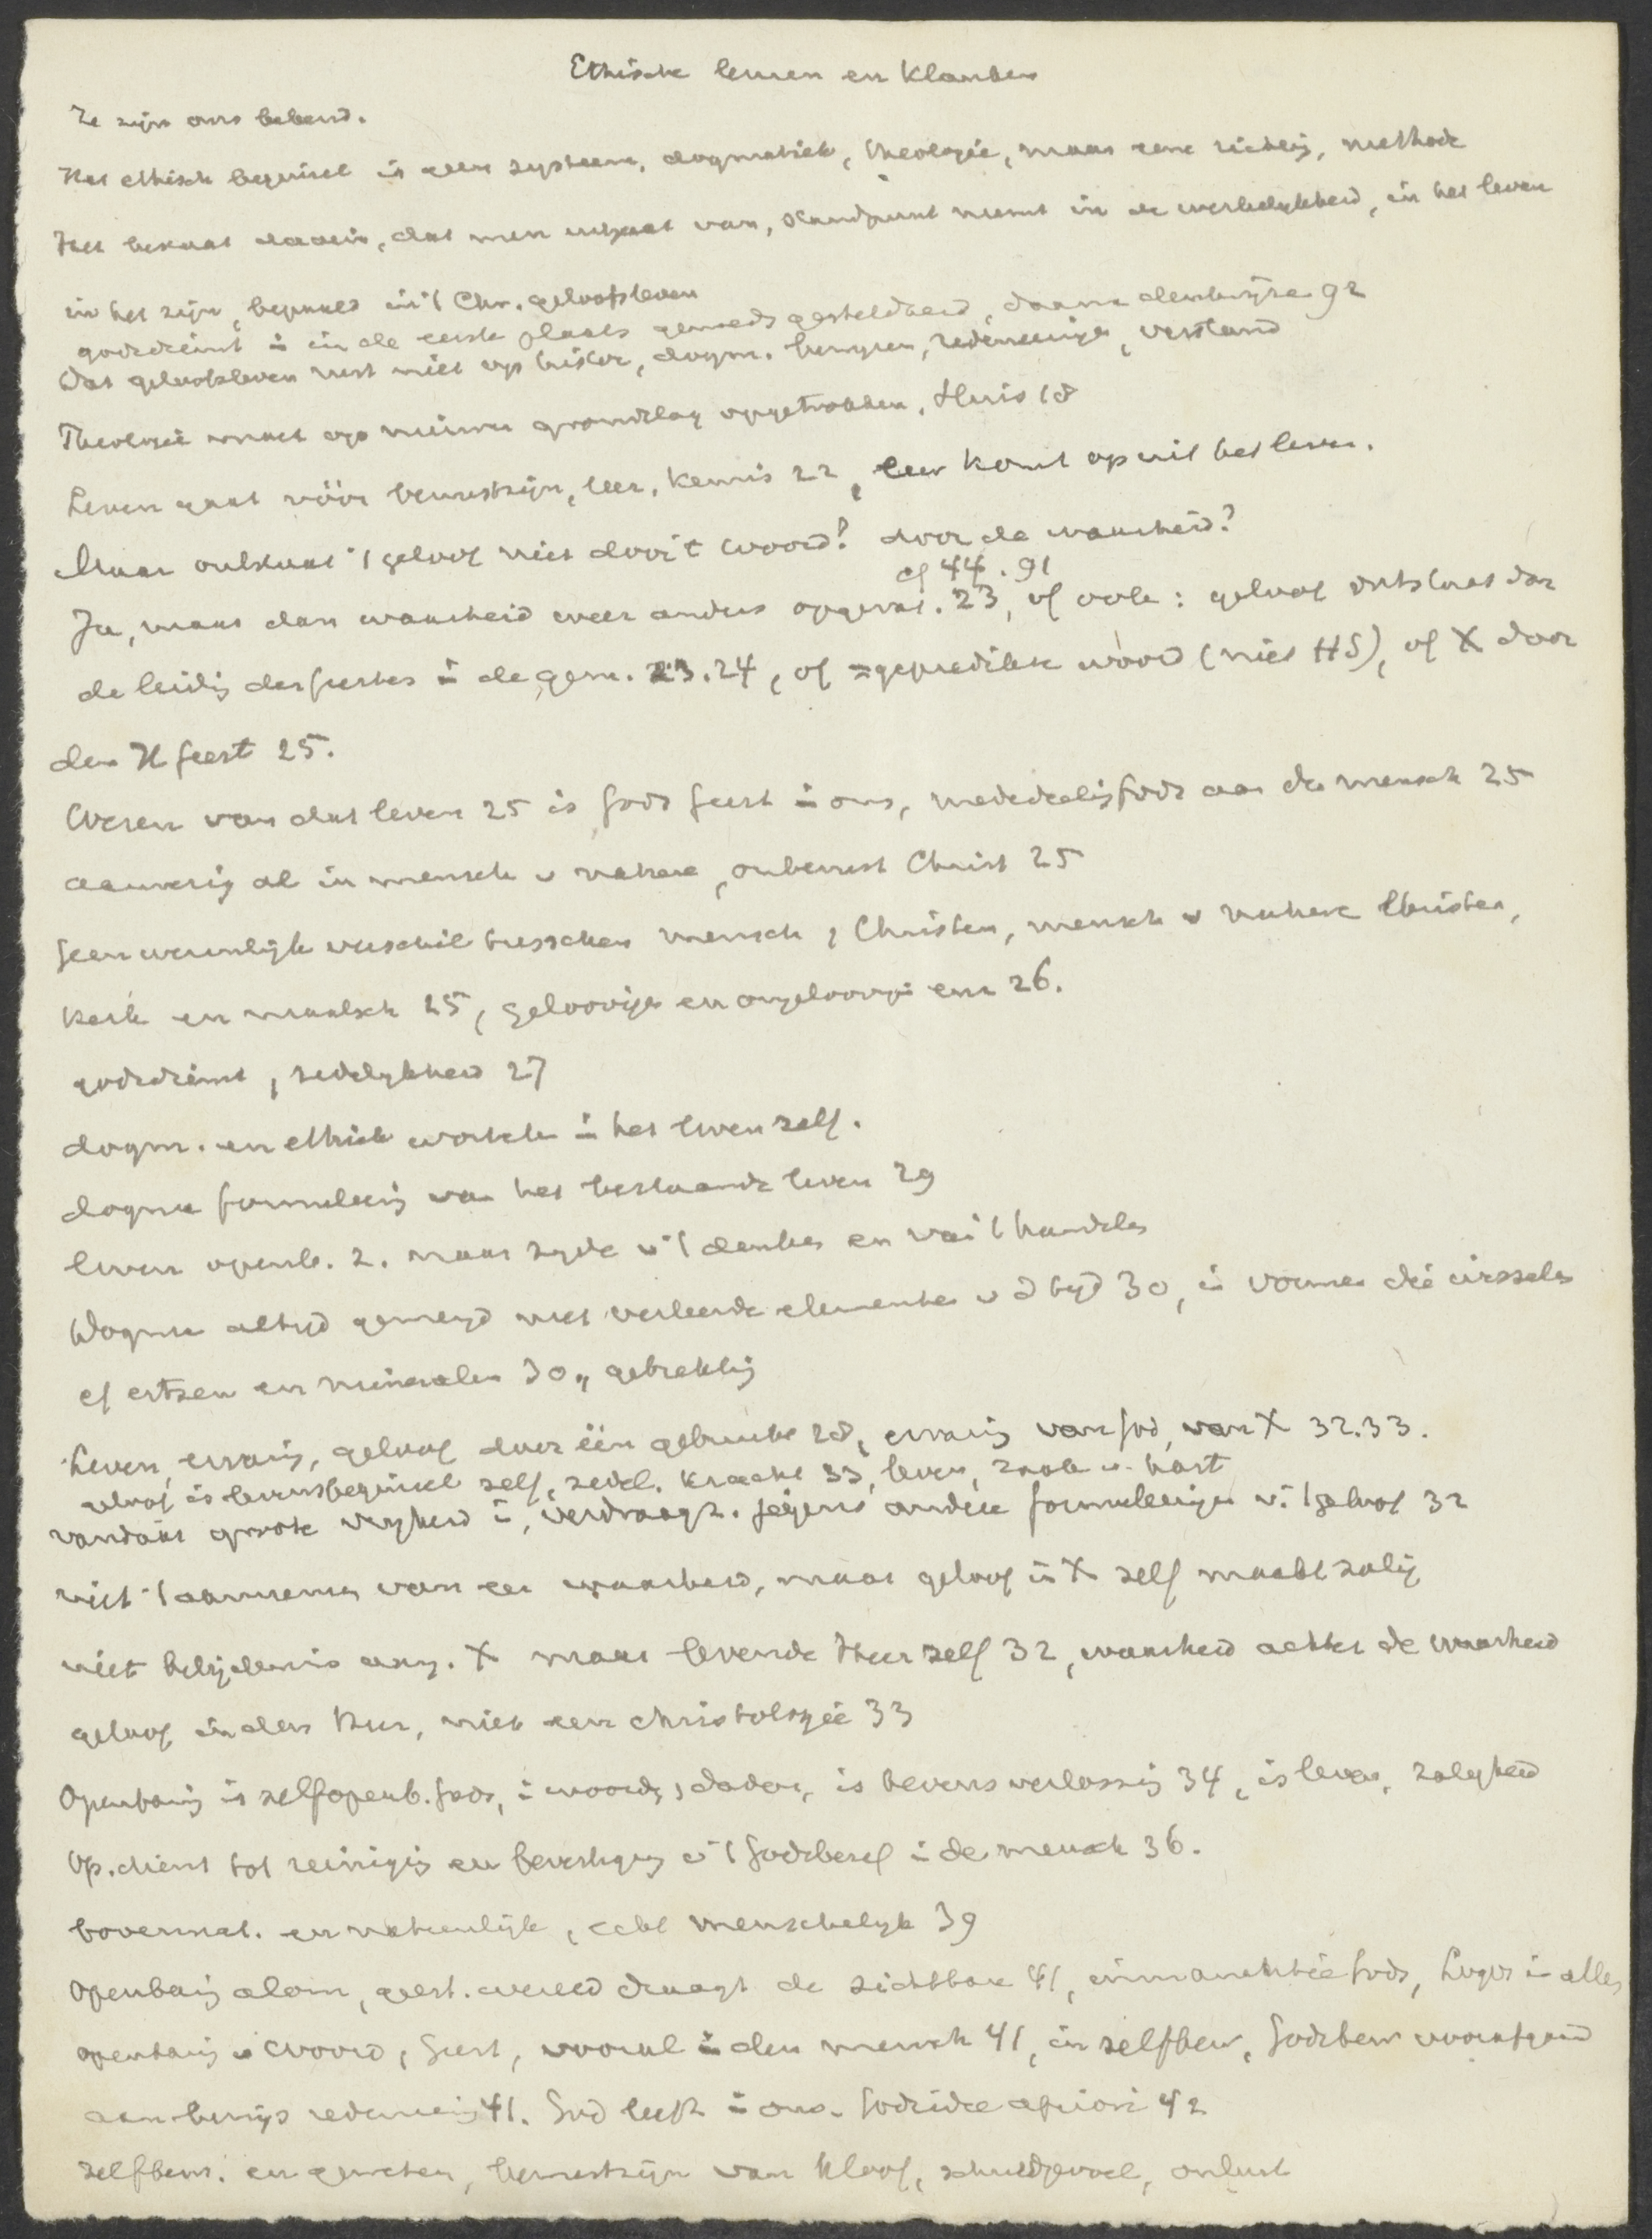 Ethische lemen en Klanken
Ze zijn ons bekend.
Het ethisch beginsel is geen systeem, dogmatiek, theologie, maar eene richting, methode
Het bestaat daarin, dat men uitgaat van, standpunt neemt in de werkelykheid, in het leven
in het zijn, bepaald in 't Chr. geloofsleven
godsdienst is in de eerste plaats gemoedsgesteldheid, daarna denkwijze 92
Dat geloofsleven rust niet op histor, dogm. bewyzen, redeneeringen, verstand
Theologie moet op nieuwen grondslag opgetrokken, thuis 18
Leven gaat vóór bewustzijn, leer, kennis 22, leer komt op uit het leven.
Maar ontstaat 't geloof niet door 't woord? door de waarheid?
cf 44. 91
Ja, maar dan waarheid weer anders opgevat. 23, of ook: geloof ontstaat door
de leidig des geestes in de gem. 23.24, of = gepredikte woord (niet HS), of X door
den H geest 25.
Wezen van dat leven 25 is Gods geest in ons, mededeeling Gods aan den mensch 25
aanwezig al in mensch v nature, onbewust Christ 25
geen wezenlijk verschil tusschen mensch , Christen, mensch v nature Christen,
kerk en maatsch 25, geloovigen en ongeloovigen 26.
godsdienst , zedelykheid 27
dogm. en ethiek wortelen in het leven zelf.
dogma formuleering van het bestaande leven 29
leven openb. z. naar zyde v 't denken en van 't handelen
Dogma altyd gemengd met verkeerde elementen v d tyd 30, in vormen die wisselen
cf ertsen en mineralen 30, gebrekkig
Leven, ervaring, geloof door één gebruikt 28, ervaring van God, van X 32.33.
geloof is levensbeginsel zelf, zedel. kracht 33, leven, zaak v. hart
vandaar groote vryheid in, verdraagz. jegens andere formuleeringen v. 't geloof 32
niet 't aannemen van een waarheid, maar geloof in X zelf maakt zalig
niet belydenis aang. X maar levende Heer zelf 32, waarheid achter de waarheid
geloof in den Heer, niet een christologie 33
Openbaring is zelfopenb. Gods, in woorden, daden, is tevens verlossing 34, is leven, zaligheid
Op. dient tot reiniging en bevestiging v 't Godsbesef in de mensch 36.
bovennat. en natuurlijk, echt menschelyk 39
Openbaring alom, geest. wereld draagt de zichtbare 41, immanentie Gods, Logos in alles
openbaring v Woord, Geest, vooral in den mensch 41, in zelfbew, Godsbew voorafgaand
aan bewijs redeneering 41. God leeft in ons. Godsidee apriori 42
zelfbew. en geweten, bewustzijn van kloof, schuldgevoel, onlust